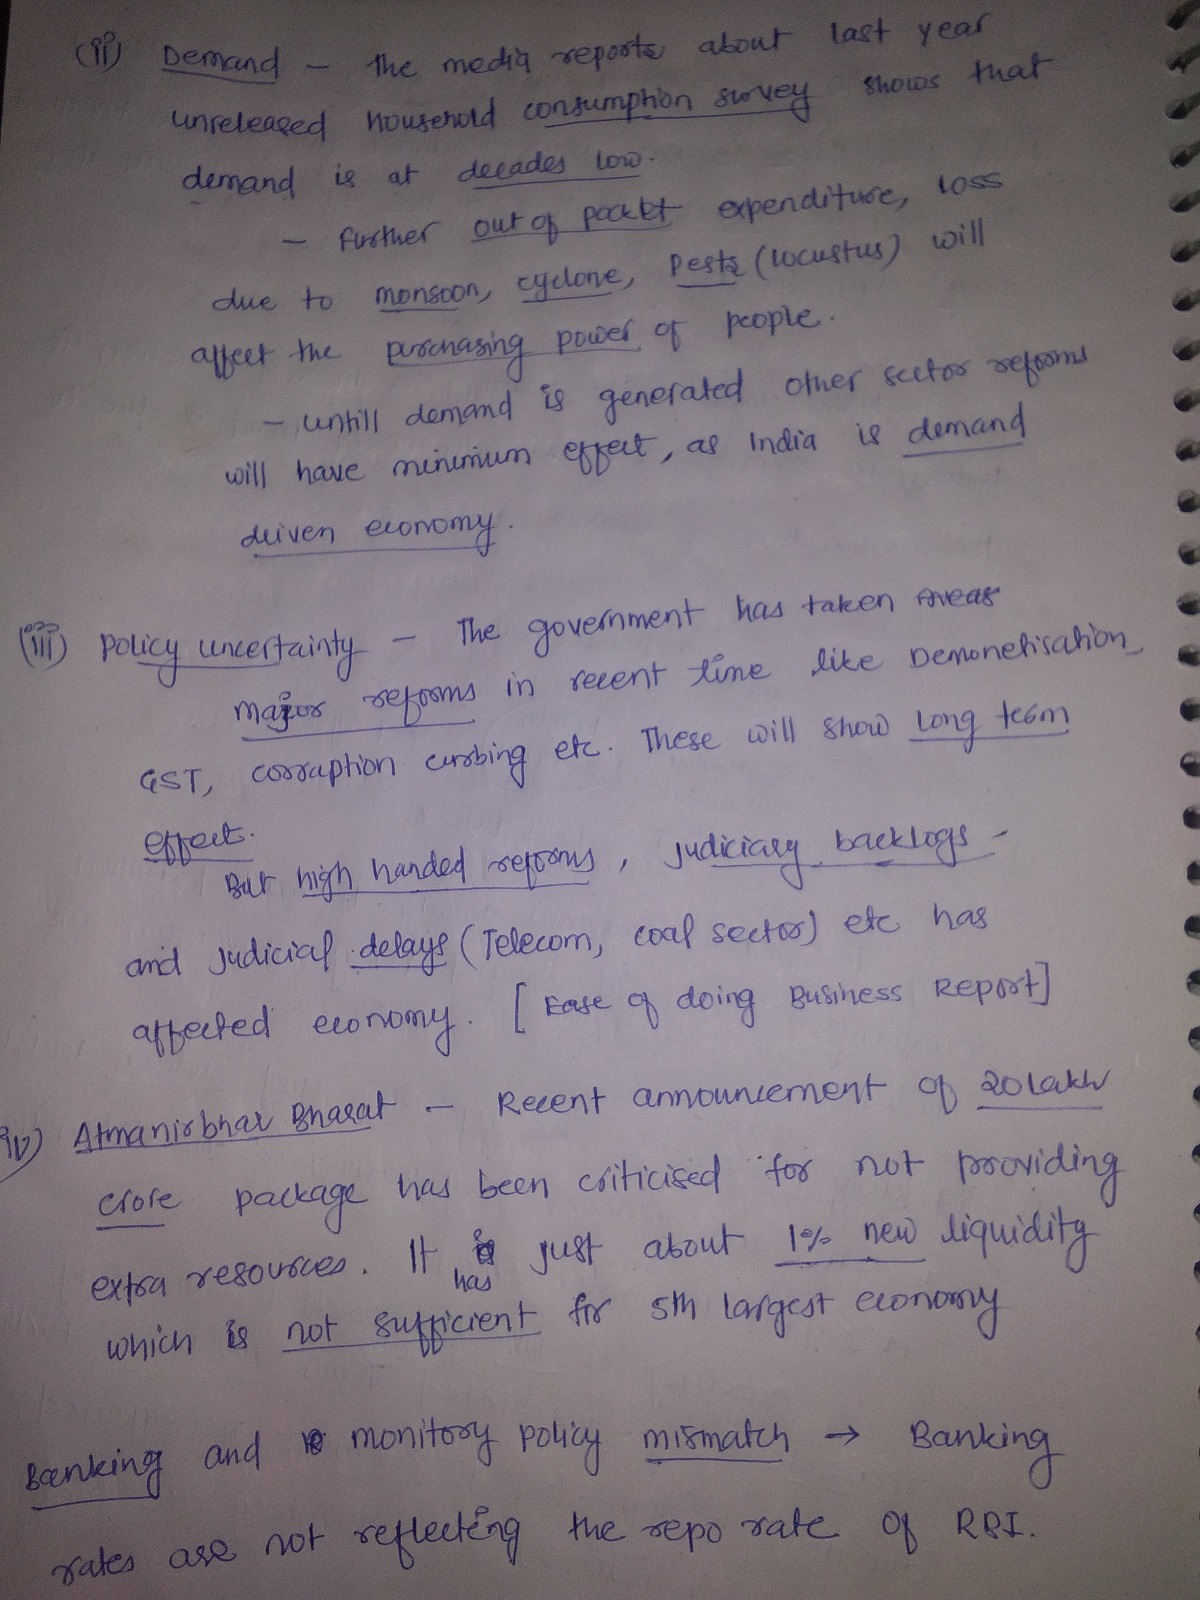 (ii) Demand - the media reports about last year
unreleased household consumption survey shows that
demand is at decades low.
- further out of pocket expenditure, loss
due to monsoon, cyclone, pests (locustus) will
affect the purchasing power of people.
- untill demand is generated other sector reforms
will have minimum effect, as India is demand
driven economy.
(iii) Policy uncertainty - The government has taken
major reforms in recent time like Demonetisation,
GST, corruption curbing etc. These will show long term
effect.
But high handed reforms, judiciary backlogs -
and judicial delays (Telecom, coal sector) etc has
affected economy. [Ease of doing Business Report]
iv) Atmanirbhar Bharat - Recent announcement of 20 lakh
crore package has been criticised for not providing
extra resources. It has just about 1% new liquidity
which is not sufficient for 5th largest economy
Banking and monitory policy mismatch → Banking
rates are not reflecting the repo rate of RBI.